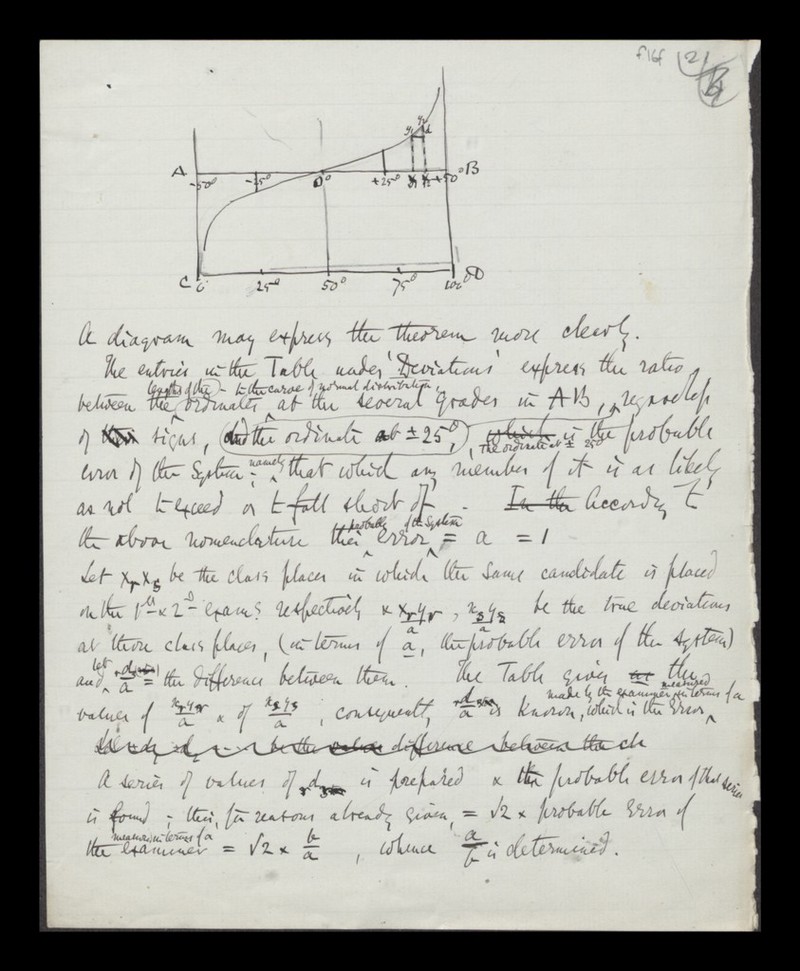 f16f (2)
A B
-50° -25° 0° +25° +50°
C D
0° 25° 50° 75° 100°
A diagram may express the theorem more clearly.
The entries in the Table under 'Deviations' express the ratio
lengths of the to the curve of normal distribution,
between the ordinates at the several grades in AB, regardless
of signs, and the ordinate at ± 25°, which is the probable
the ordinate at ± 25°
error of the System: namely that which any member of it is as likely
as not to exceed or to fall short of. In the According to
the above nomenclature this probable error of the System = a = 1
Let xr xs be the class places in which the same candidate is placed
on the 1st & 2d exams respectively & xr yr / a, xs ys / a be the true deviations
at those class places, (in terms of a, the probable error of the system)
and let d / a = the difference between them. The Table gives the
measured
values of xr yr / a & of xs ys / a, consequently d / a is known, which is the Error
made by the examiner in terms of a
be the difference between the
A series of values of d is prepared & the probable error of that series
is found; this, for reasons already given, = √2 × probable Error of
measured in terms of a
the examiner = √2 × b / a, whence a / b is determined.